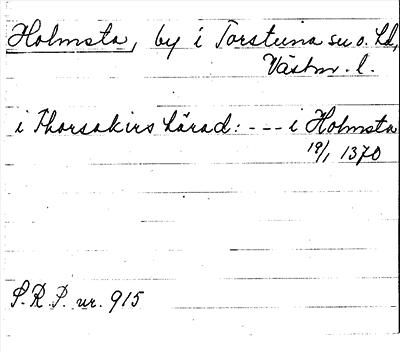 Holmsta, by i Torstuna sn o. hd,
Västm. l.
i Thorsakirs härad: --- i Holmsta
19/1 1370
S.R.P. nr. 915